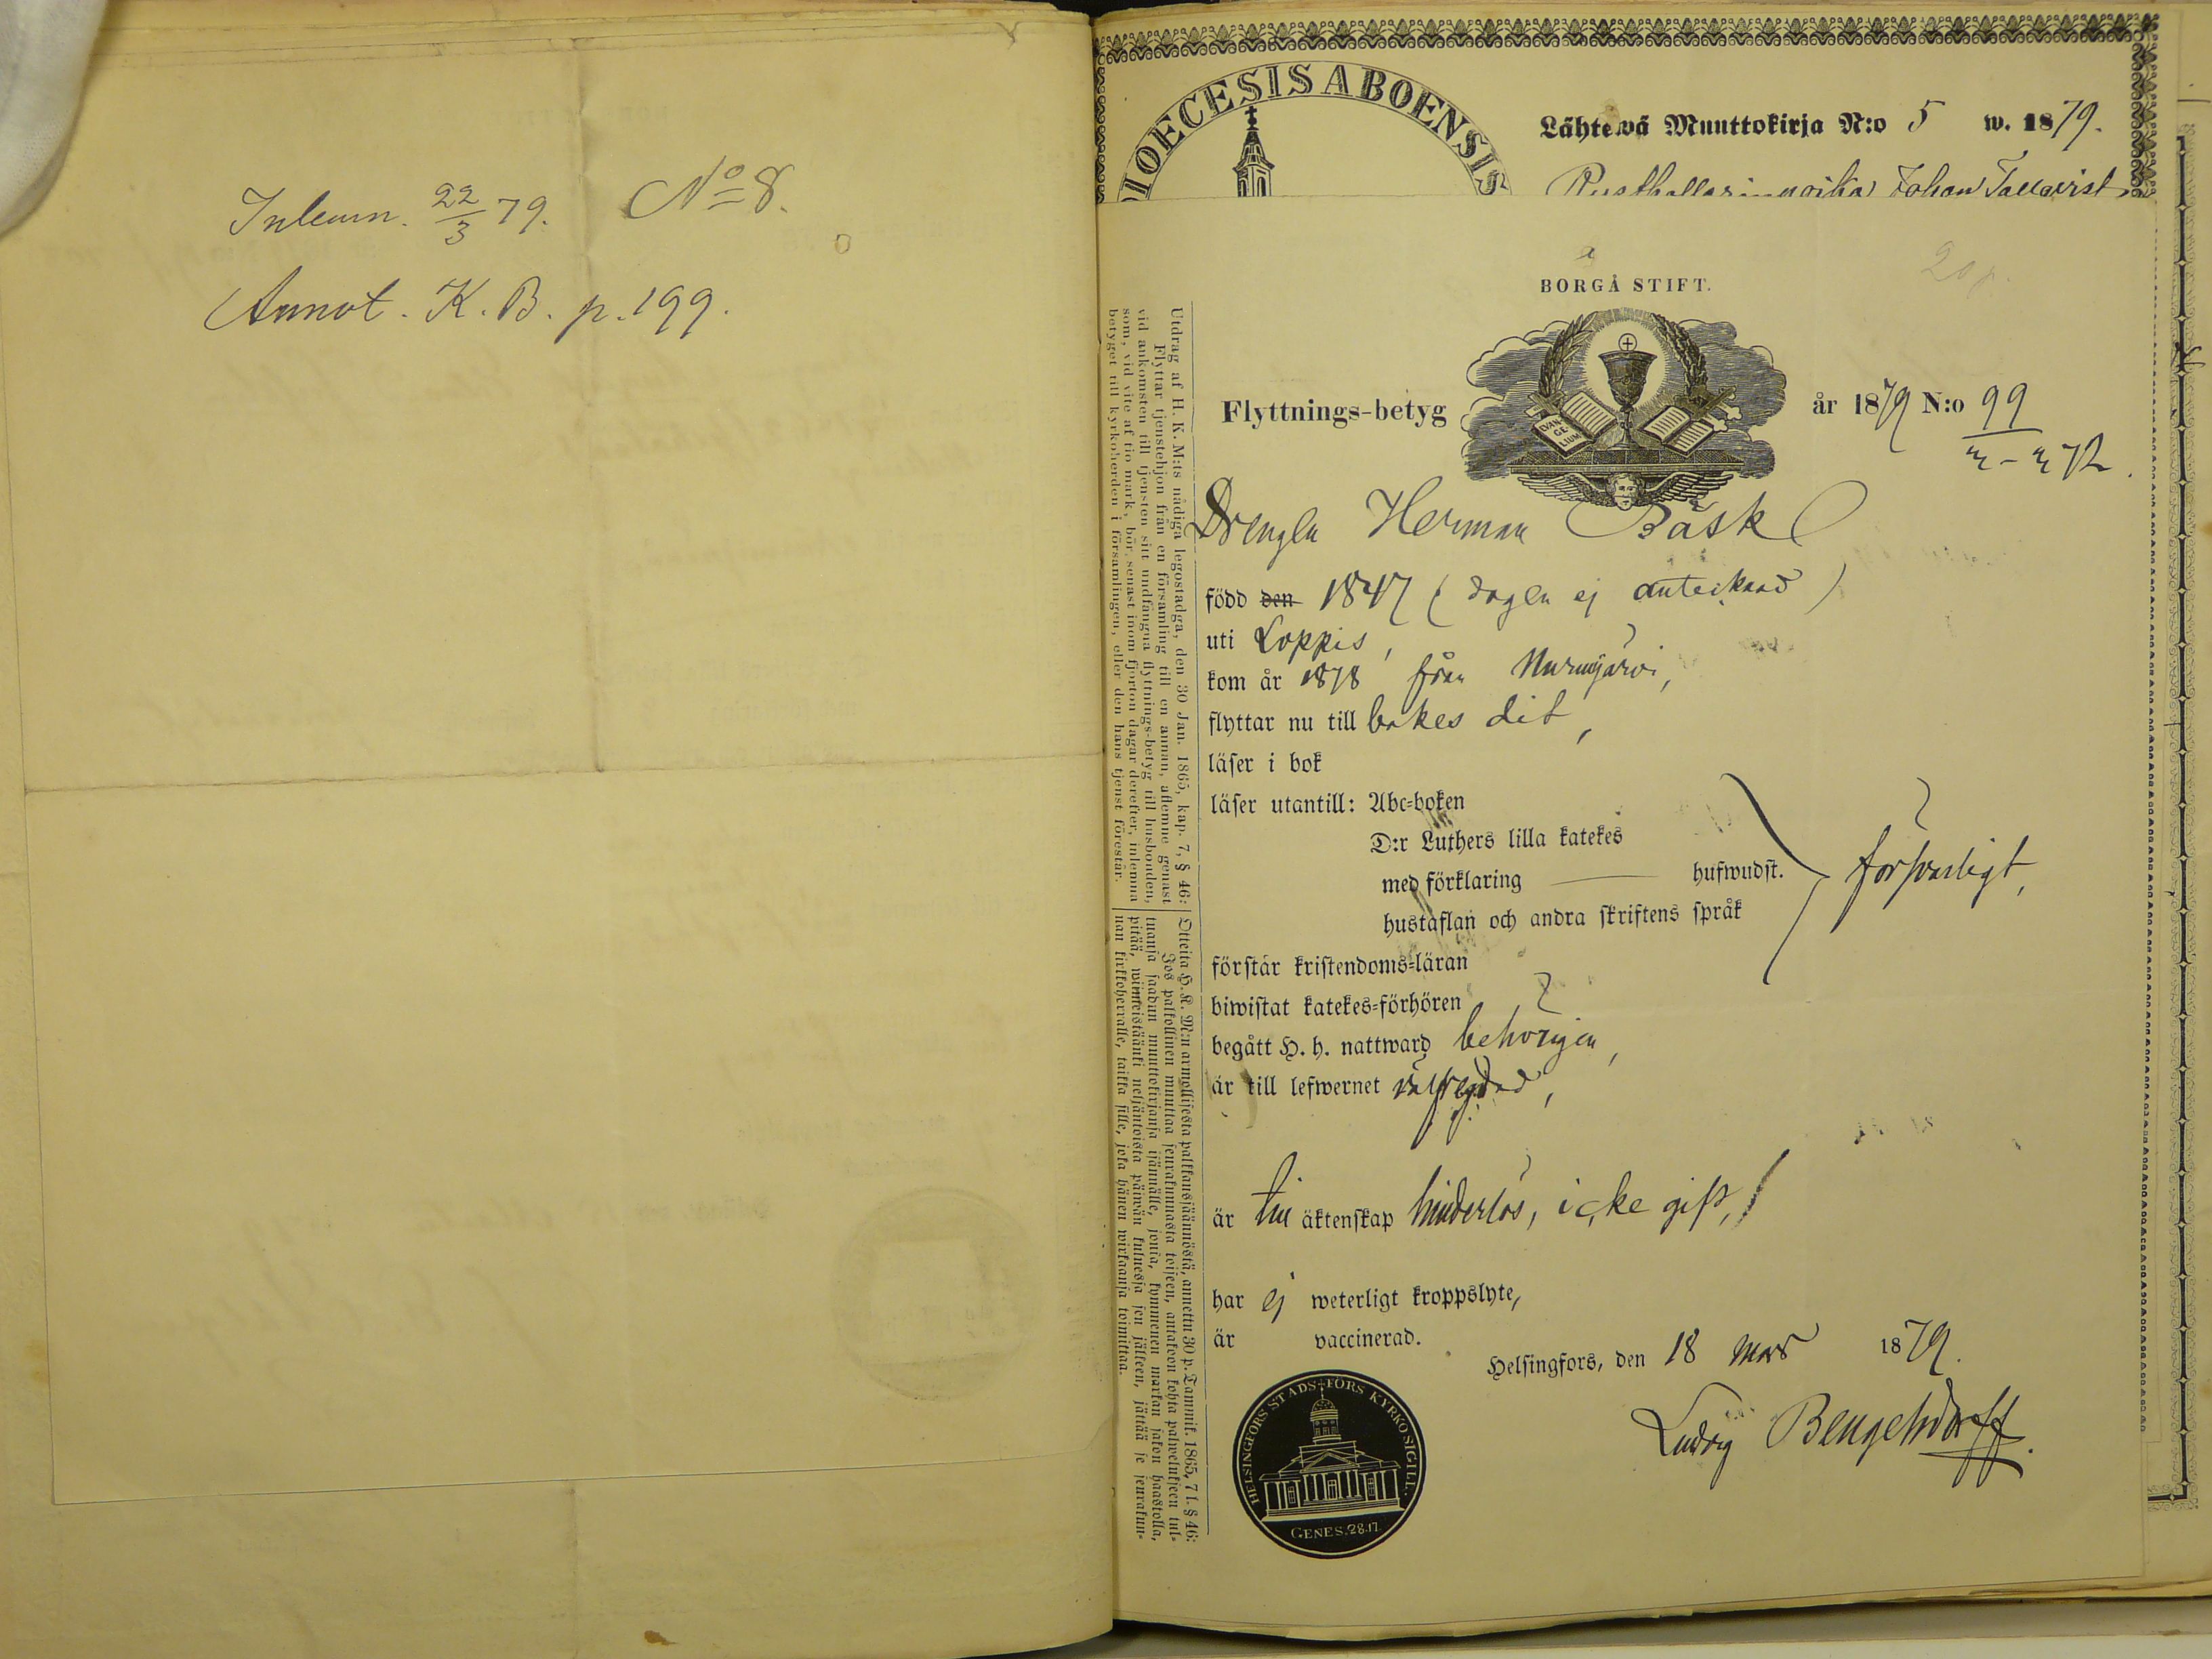 Inlemn. 22/3 79. No 8.
Annot. K. B. p. 199.
DIOECESIS ABOENSIS
Lähtewä Muuttokirja N:o 5 w. 1879.
Johan Tallqvist
20 p.
BORGÅ STIFT.
EVAN-
GE-
LIUM
Flyttnings-betyg år 1879 N:o 99
Drengen Herman Bäsk
född den 1847 (dagen ej antecknad)
uti Loppis,
kom år 1878 från Nurmijärvi,
flyttar nu till bakes dit,
läser i bok
läser utantill: Abc-boken
D:r Luthers lilla katekes
med förklaring hufwudst. försvarligt,
hustaflan och andra skriftens språk
förstår kristendoms-läran
biwistat katekes-förhören
begått H. h. nattward behörigen,
är till lefwernet välfrejdad,
är till äktenskap hinderlös, icke gift,
har ej weterligt kroppslyte,
är vaccinerad.
Helsingfors, den 18 Mars 1879.
Ludvig Bengelsdorff.
HELSINGFORS STADS FÖRS KYRKO SIGILL.
GENES. 28.17.
Utdrag af H. K. M:ts nådiga legostadga, den 30 Jan. 1865, kap. 7, § 46:
Flyttar tjenstehjon från en församling till en annan, aflemne genast
vid ankomsten till tjensten sitt undfångna flyttnings-betyg till husbonden,
som, vid vite af tio mark, bör, senast inom fjorton dagar derefter, inlemna
betyget till kyrkoherden i församlingen, eller den hans tjenst förestår.
Otteita H. K. M:n armollisesta palkkaussäännöstä, annettu 30 p. Tammik. 1865, 7 l. § 46:
Jos palkollinen muuttaa seurakunnasta toiseen, antakoon kohta palwelukseen tul-
tuansa saadun muuttokirjansa isännälle, jonka, kymmenen markan sakon haastolla,
pitää, wiimeistäänki neljäntoista päiwän kuluessa sen jälkeen, jättää se seurakun-
nan kirkkoherralle, taikka sille, joka hänen wirkaansa toimittaa.